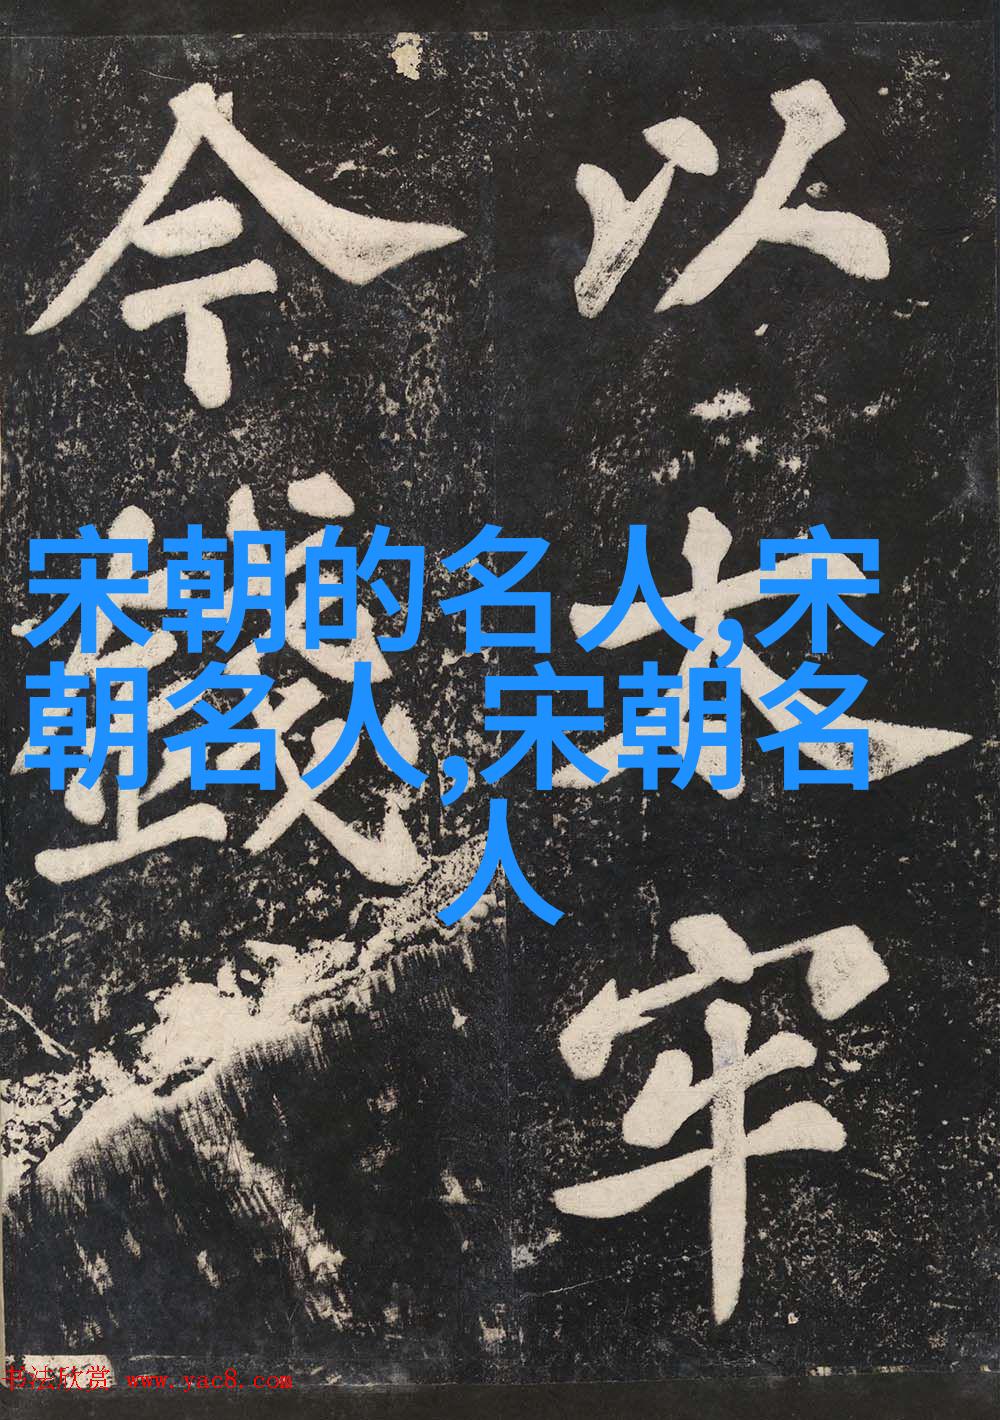 以太牢
今
宋朝的名人,宋
朝名人,宋朝名
人
书法欣赏 www.yac8.com